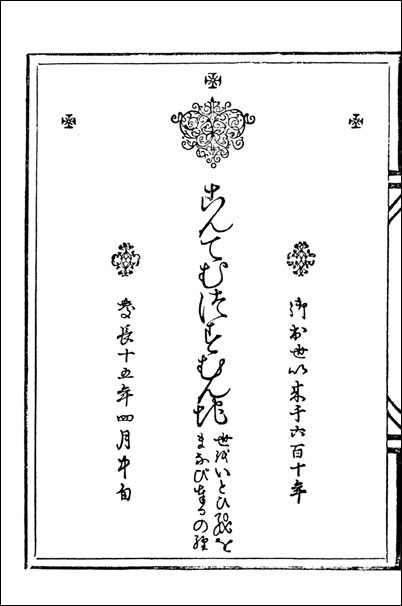 御出世以来千六百十年
こんてむつすむん地
世をいとひ を
まなび奉るの経
慶長十五年四月中旬